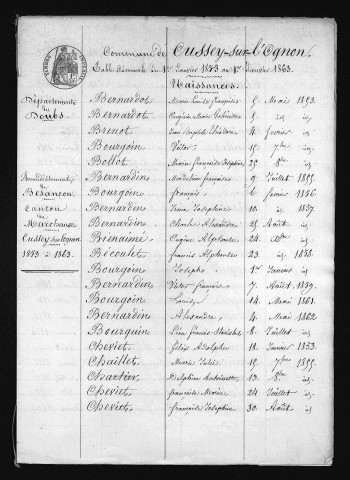 Commune de Cussey-sur-l'Ognon.
Table Décennale du 1er Janvier 1853 au 1er Janvier 1863.
Naissances.
Département
du
Doubs.
Arrondissement
de
Besançon
Canton
de
Marchaux
Cussey sur l'Ognon
1853 à 1863.
Bernardot Marie Louise Françoise 5 Mai 1853.
Bernardot 8 id
Brenot 4 février id
Bourgoin Victor 15 7bre id
Bollot Marie françoise Joséphine 25 8bre id
Bernardin Madeleine françoise 9 Juillet 1855.
Bourgoin françois 6 fevrier 1856.
Bernardin Joséphine 10 id 1857.
Bernardin Charles Alexandre 25 Août id
Brénaimé Eugène Alphonse 24 id
Bécoulet françois Alphonse 23 id 1858.
Bourgoin Joseph 1er Janvier id
Bernardin Victor françois 7 Août 1859.
Bourgoin Louis 14 Mai 1861.
Bernardin Alexandre 4 Mai 1862
Bourgoin Léon françois Stanislas 8 Juillet id
Cheviet Adolphe 18 Janvier 1853.
Chaillet Marie Julie 15 7bre 1855.
Chartier Delphine Antoinette 13 8bre id
Cheviet françoise Marie 24 Juillet id
Cheviet françoise Joséphine 30 Août id